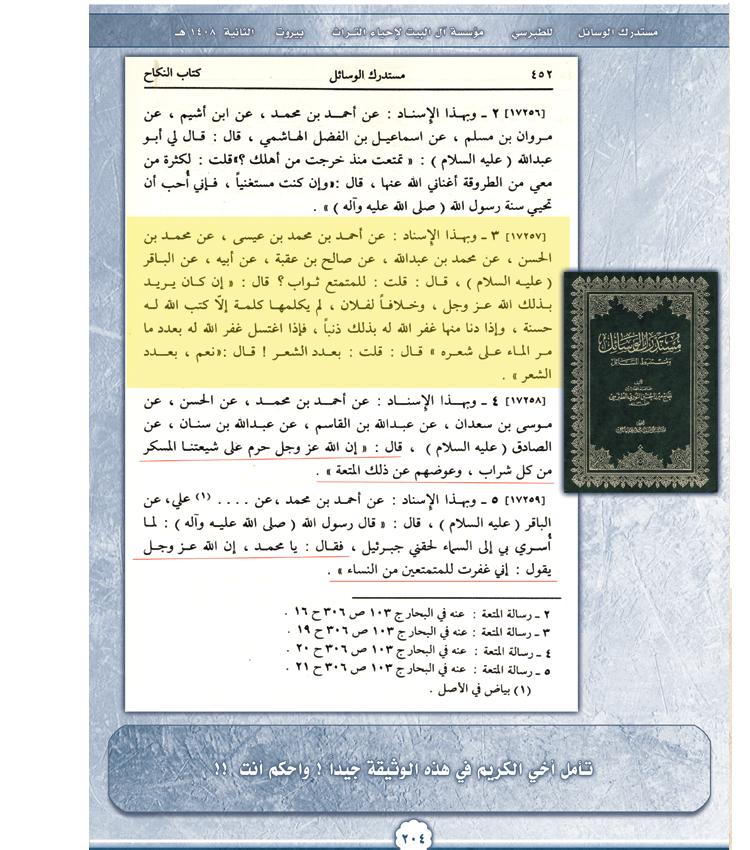 مستدرك الوسائل للطبرسي مؤسسة آل البيت لإحياء التراث بيروت الثانية ١٤٠٨ هـ
٤٥٢ مستدرك الوسائل كتاب النكاح
[١٧٢٥٦] ٢ ـ وبهذا الإسناد : عن أحمد بن محمد ، عن ابن أشيم ، عن
مروان بن مسلم ، عن اسماعيل بن الفضل الهاشمي ، قال : قال لي أبو
عبدالله ( عليه السلام ) : « تمتعت منذ خرجت من أهلك ؟» قلت : لكثرة من
معي من الطروقة أغناني الله عنها ، قال :«وإن كنت مستغنياً ، فإني أُحب أن
تحيي سنة رسول الله ( صلى الله عليه وآله ) » .
[١٧٢٥٧] ٣ ـ وبهذا الإسناد : عن أحمد بن محمد بن عيسى ، عن محمد بن
الحسن ، عن محمد بن عبدالله ، عن صالح بن عقبة ، عن أبيه ، عن الباقر
( عليه السلام ) ، قال : قلت : للمتمتع ثواب ؟ قال : « إن كان يريد
بذلك الله عز وجل ، وخلافاً لفلان ، لم يكلمها كلمة إلّا كتب الله له
حسنة ، وإذا دنا منها غفر الله له بذلك ذنباً ، فإذا اغتسل غفر الله له بعدد ما
مر الماء على شعره » قال : قلت : بعدد الشعر ! قال :«نعم ، بعدد
الشعر » .
[١٧٢٥٨] ٤ ـ وبهذا الإسناد : عن أحمد بن محمد ، عن الحسن ، عن
موسى بن سعدان ، عن عبدالله بن القاسم ، عن عبدالله بن سنان ، عن
الصادق ( عليه السلام ) ، قال : « إن الله عز وجل حرم على شيعتنا المسكر
من كل شراب ، وعوضهم عن ذلك المتعة » .
[١٧٢٥٩] ٥ ـ وبهذا الإسناد : عن أحمد بن محمد ،عن . . . . (١) علي، عن
الباقر ( عليه السلام ) ، قال : « قال رسول الله ( صلى الله عليه وآله ) : لما
أُسري بي إلى السماء لحقني جبرئيل ، فقال : يا محمد ، إن الله عز وجل
يقول : إني غفرت للمتمتعين من النساء » .
٢ ـ رسالة المتعة : عنه في البحار ج ١٠٣ ص ٣٠٦ ح ١٦ .
٣ ـ رسالة المتعة : عنه في البحار ج ١٠٣ ص ٣٠٦ ح ١٩ .
٤ ـ رسالة المتعة : عنه في البحار ج ١٠٣ ص ٣٠٦ ح ٢٠ .
٥ ـ رسالة المتعة : عنه في البحار ج ١٠٣ ص ٣٠٦ ح ٢١ .
(١) بياض في الأصل .
مستدرك الوسائل
ومستنبط المسائل
تأمل أخي الكريم في هذه الوثيقة جيدا ! واحكم أنت !!
٢٠٤